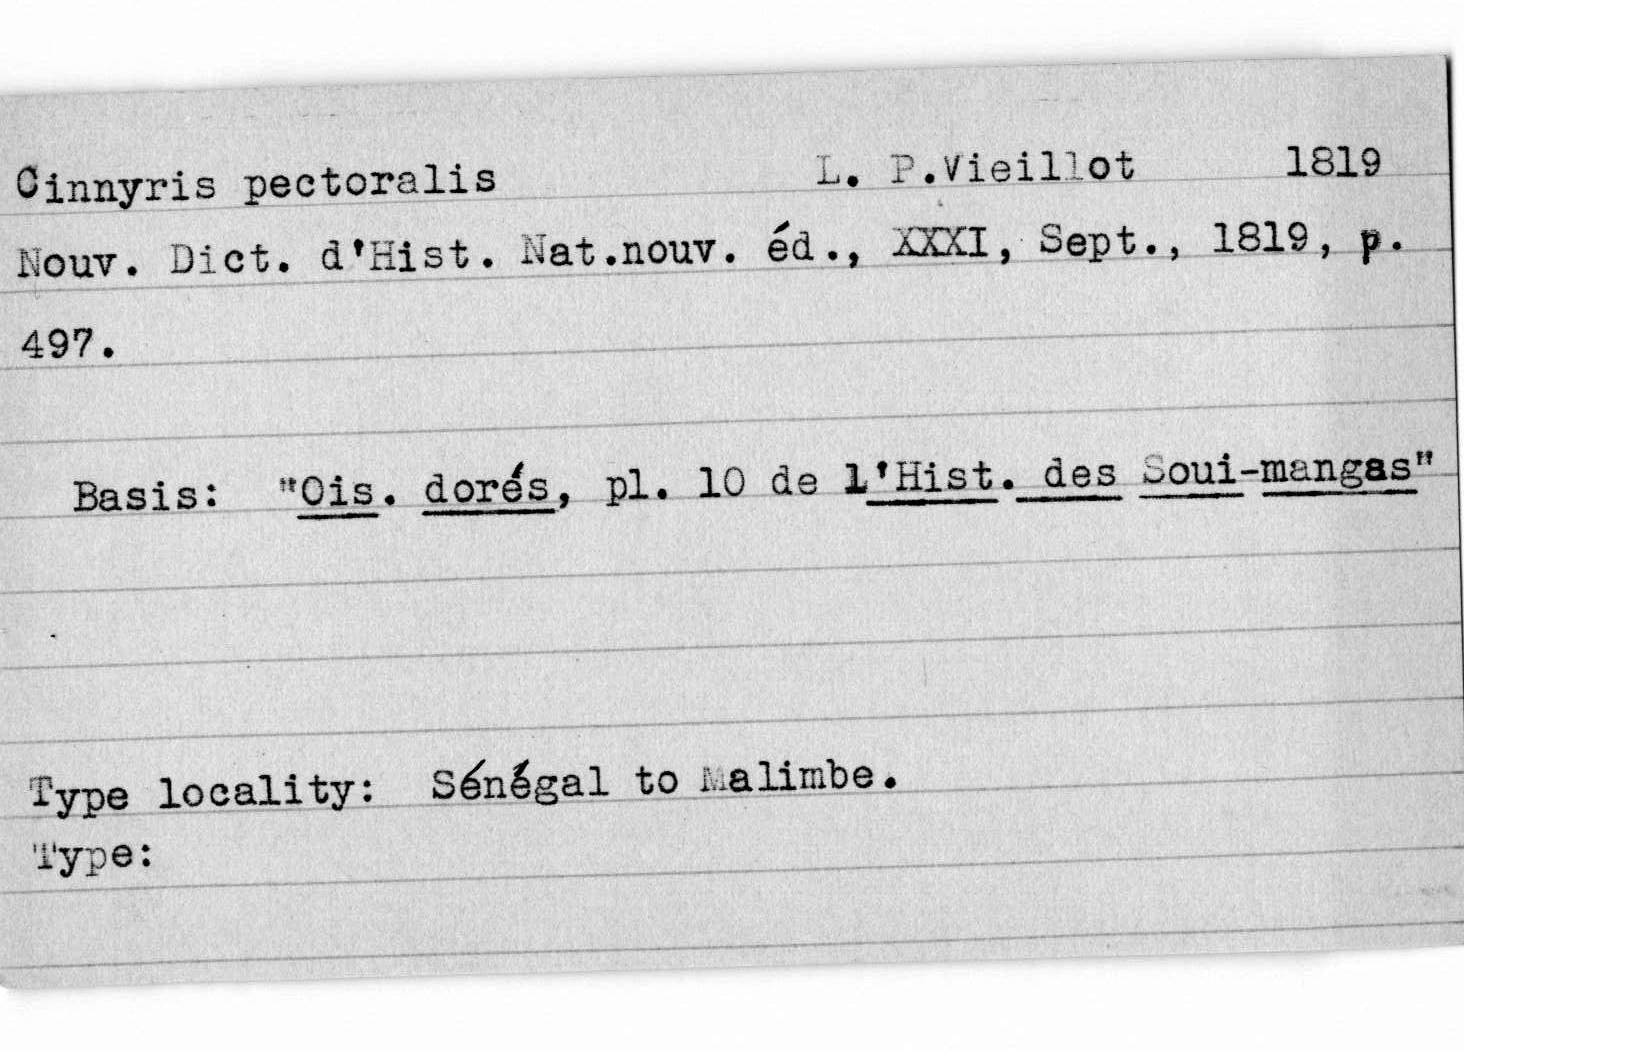 Cinnyris pectoralis L. P.Vieillot 1819
Nouv. Dict. d'Hist. Nat.nouv. éd., XXXI, Sept., 1819, p.
497.
Basis: "Ois. dorés, pl. 10 de l'Hist. des Soui-mangas"
Type locality: Sénégal to Malimbe.
Type: